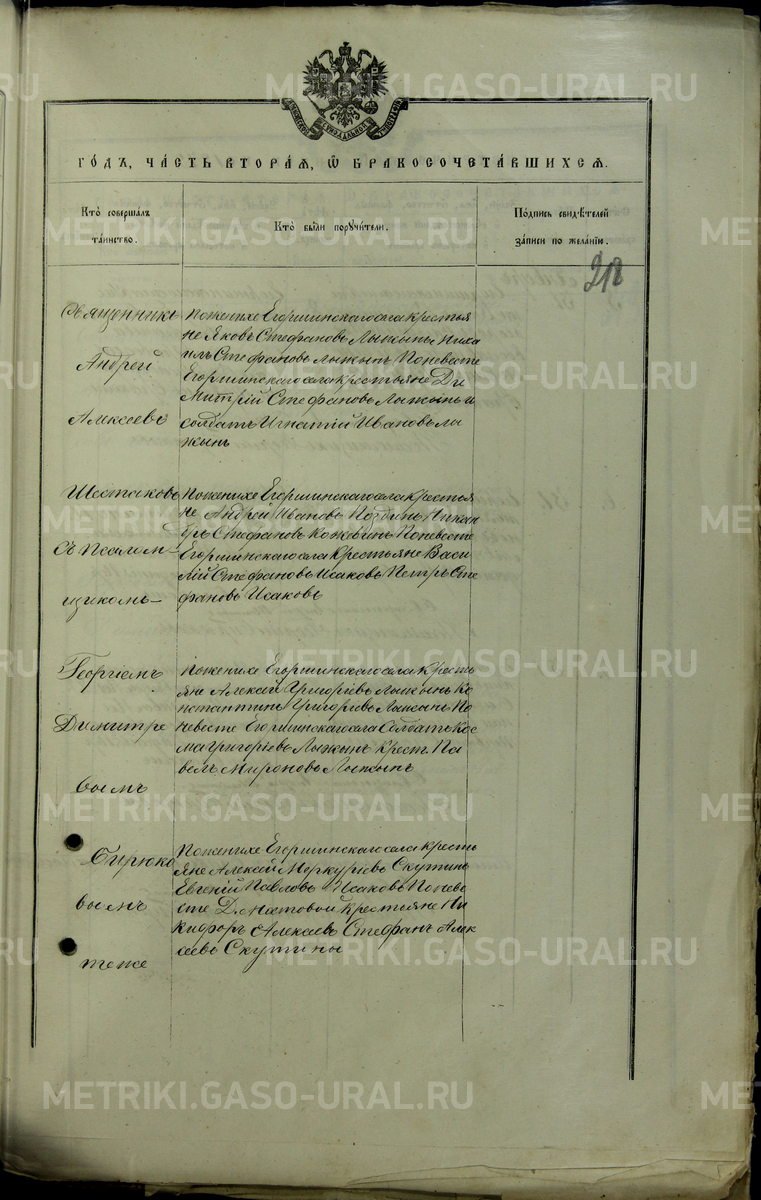 METRIKI.GASO-URAL.RU
го́дъ, ча́сть втора́ѧ, ѡ҆ бракосочета́вшихсѧ.
Кто̀ соверша́лъ
та́инство.
Кто̀ бы́ли поручи́тели.
По́дпись свидѣ́телей
за́писи по жела́нїю.
218
Священникъ
Андрей
Алексеевъ
Поженихе Егоршинскаго села крестья
не Яковъ Стефановъ Лыжынъ Миха
илъ Стефановъ Лыжынъ Поневесте
Егоршинскаго села крестьяне Ди
митрій Стефановъ Лыжынъ и
солдатъ Игнатій Ивановъ Лы
жынъ
Шестаковъ
съ Псалом-
щикомъ-
Поженихе Егоршинскаго села крестья
не Андрей Ивановъ Никан
бръ Стефановъ Кожевинъ Поневесте
Егоршинскаго села Крестьяне Васи
лій Стефановъ Исаковъ Петръ Сте
фановъ Исаковъ
Георгіемъ
Димитре
вымъ
Поженихе Егоршинскаго села Кресть
яне Алексей Григоріевъ Лыжынъ Ко
нстантинъ Григоріевъ Лыжынъ По
невесте Егоршинскаго села Солдатъ Кос
ма Григоріевъ Лыжынъ Крест. Па
велъ Мироновъ Лыжынъ
Бирюко
вымъ
теже
Поженихе Егоршинскаго села Кресть
яне Алексей Меркуріевъ Скутинъ
Евгеній Павловъ Исаковъ Поневе
сте Д. Ахтовой Крестьяне Ни
кифоръ Алексеевъ Стефанъ Алек
сеевъ Скутины